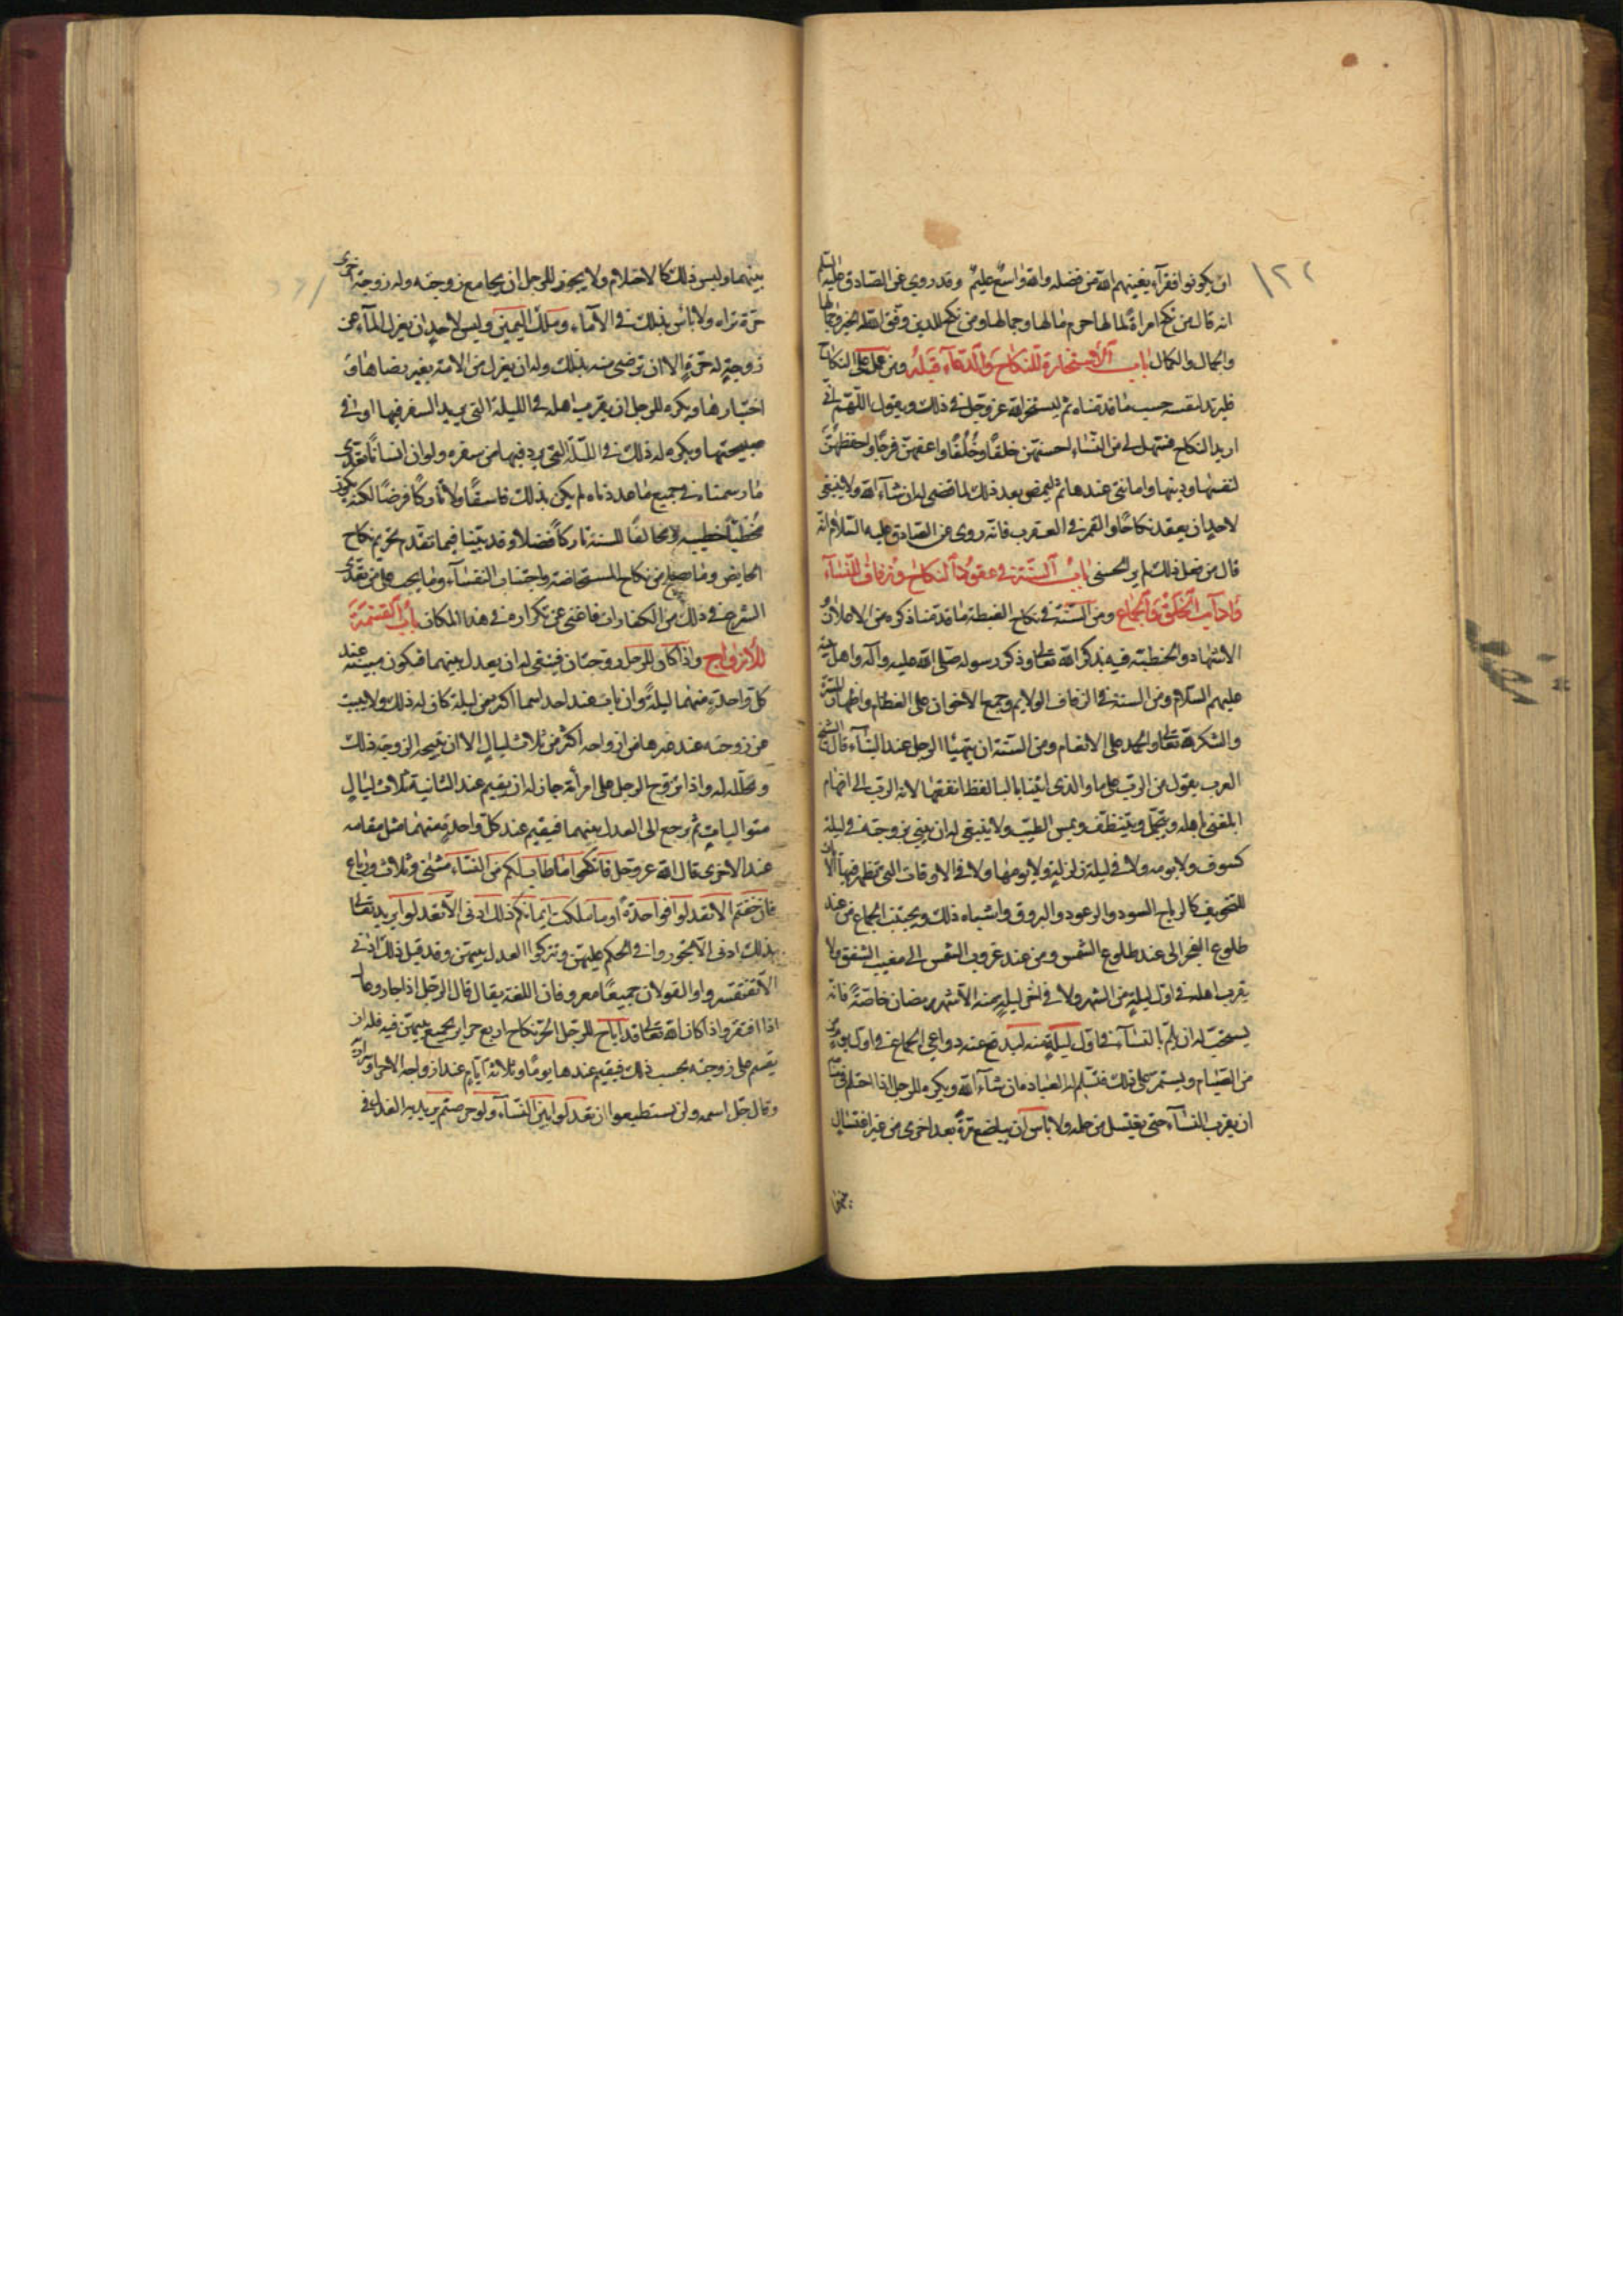 ١٢٢
ان يكونوا فقرآء يغنيهم الله من فضله والله واسع عليم وقد روي عن الصادق عليه السلم
انه قال من نكح امراة لمالها حرم مالها وجمالها ومن نكح للدين وفق الله له الخير
والجمال والكمال باب الاستخارة للنكاح والدعآء قبله ومن عمل على النكاح
فليرتد لنفسه حسب ما قدمناه ثم ليستخر الله عز وجل في ذلك ويقول اللهم اني
اريد النكاح فسهل لي من النساء احسنهن خلقا وخلقا واعفهن فرجا واحفظهن
لنفسها ودينها وامانتي عندها ثم ليمض بعد ذلك لما قضي له ان شآء الله ولا ينبغي
لاحد ان يعقد نكاحا والقمر في العقرب فانه روى عن الصادق عليه السلام انه
قال من فعل ذلك لم ير الحسنى باب السنة في عقود النكاح وزفاف النسآء
وآداب الخلوة والجماع ومن السنة في نكاح الغبطة ما قدمنا ذكره من الاعلان و
الاشهاد والخطبة فيه بذكر الله تعالى وذكر رسوله صلى الله عليه وآله واهل بيته
عليهم السلام ومن السنة في الزفاف الولايم وجمع الاخوان على الطعام واظهار المسرة
والشكر لله تعالى والحمد على الانعام ومن السنة ان يتهيأ الرجل عند النسآء قال الشيخ
العرب يقول من الرتب على ما والذي
اهله ويتجمل ويتنظف ويمس الطيب ولا ينبغي له ان يبني بزوجته في ليلة
كسوف ولا يومه ولا في ليلة زلزلة ولا يومها ولا في الاوقات التي تظهر فيها الايات
للتخويف كالرياح السود والرعود والبروق واشباه ذلك ويجتنب الجماع من عند
طلوع الفجر الى عند طلوع الشمس ومن عند غروب الشمس الى مغيب الشفق ولا
يقرب اهله في اول ليلة من الشهر ولا في اخر ليلة منه الا شهر رمضان خاصة فانه
يستحب له ان يلم بالنسآء في اول ليلة منه ليدفع عنه دواعي الجماع في اول يوم
من الصيام ويستمر على ذلك فتسلم له العبادة ان شآء الله ويكره للرجل اذا احتلم في منامه
ان يقرب النسآء حتى يغتسل من حلمه ولا بأس ان يباضع مرة بعد اخرى من غير اغتسال
بينهما
بينهما وليس ذلك كالاحتلام ولا يجوز للرجل ان يجامع زوجته وله زوجة اخرى
حرة تراه ولا بأس بذلك في الامآء وملك اليمين وليس لاحد ان يعزل المآء عن
زوجة له حرة الا ان ترضى منه بذلك وله ان يعزل عن الامة بغير رضاها و
اختيارها ويكره للرجل ان يقرب اهله في الليلة التي يريد السفر فيها او في
صبيحتها ويكره له ذلك في الليلة التي يرد فيها من سفره ولو ان انسانا تعدى
ما رسمناه في جميع ما عددناه لم يكن بذلك فاسقا ولا تاركا فرضا لكنه يكون
مخطيا خطيئة ومخالفا للسنة تاركا فضلا وقد بينا فيما تقدم تحريم نكاح
الحايض وما صلح من نكاح المستحاضة واجتناب النفسآء وما يجب على من تعدى
الشرع في ذلك من الكفارات فاغنى عن تكراره في هذا المكان باب القسمة
للازواج واذا كان للرجل زوجتان فينبغي له ان يعدل بينهما فيكون مبيته عند
كل واحدة منهما ليلة وان بات عند احديهما اكثر من ليلة كان له ذلك ولا يبيت
عن زوجته عند غيرها من ازواجه اكثر من ثلاث ليال الا ان تبيحه الزوجة ذلك
وتحلله له واذا تزوج الرجل على امرأة جاز له ان يقيم عند الثانية ثلاث ليال
متواليات ثم يرجع الى العدل بينهما فيقيم عند كل واحدة منهما مثل مقامه
عند الاخرى قال الله عز وجل فانكحوا ما طاب لكم من النساء مثنى وثلاث ورباع
فان خفتم الا تعدلوا فواحدة او ما ملكت ايمانكم ذلك ادنى الا تعدلوا يريد تعالى
بذلك ادنى الا تجوروا في الحكم عليهن وتتركوا العدل بينهن وقد قيل ذلك ادنى
الا تفتقروا والقولان جميعا معروفان اللغة يقال قال الرجل اذا جار وعال
اذا افتقر واذا كان الله تعالى قد اباح للرجل الحر نكاح اربع حراير يجمع بينهن فيه فله ان
يقسم على زوجته بحسب ذلك فيقيم عندها يوما وثلاثة ايام عند ازواجه الاخر
وقال جل اسمه ولن تستطيعوا ان تعدلوا بين النسآء ولو حرصتم يريد به العدل في